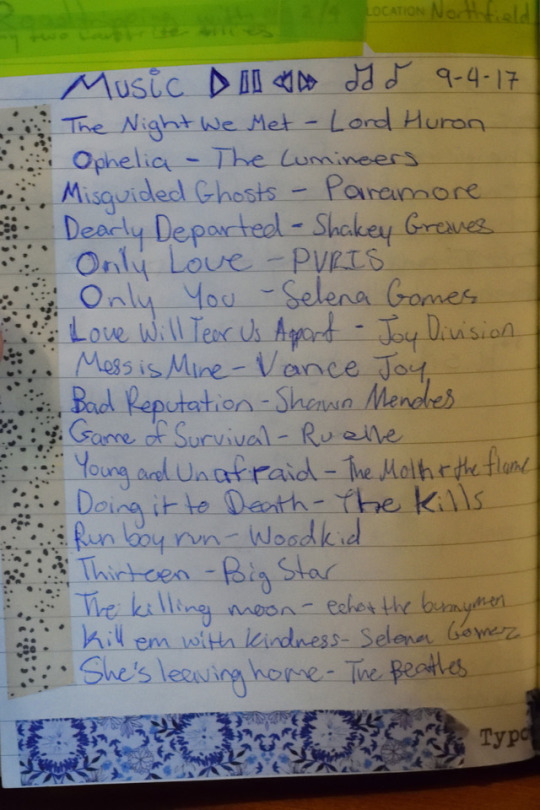 2/4
LOCATION: Northfield
Music 9-4-17
The Night We Met - Lord Huron
Ophelia - The Lumineers
Misguided Ghosts - Paramore
Dearly Departed - Shakey Graves
Only Love - PVRIS
Only You - Selena Gomes
Love Will Tear Us Apart - Joy Division
Mess is Mine - Vance Joy
Bad Reputation - Shawn Mendes
Game of Survival - Ruelle
Young and Unafraid - The Moth & the flame
Doing it to Death - The Kills
Run boy run - Woodkid
Thirteen - Big Star
The killing moon - echo & the bunnymen
kill em with kindness - Selena Gomez
She's leaving home - The Beatles
Typo